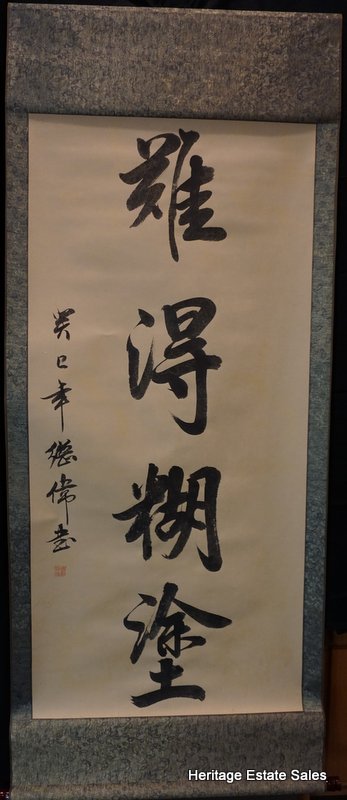 難得糊塗
癸巳年継偉书
Heritage Estate Sales